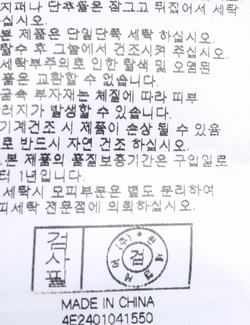 지퍼나 단추들은 잠그고 뒤집어서 세탁
십시오.
본 제품은 단일단독 세탁 하십시오.
탈수 후 그늘에서 건조시켜 주십시오.
세탁부주의로 인한 탈색 및 오염된
품은 교환할 수 없습니다.
금속 부자재는 체질에 따라 피부
러지가 발생할 수 있습니다.
기계건조 시 제품이 손상 될 수 있음
로 반드시 자연 건조 하십시오.
본 제품의 품질보증기간은 구입일로
터 1년입니다.
세탁시 모피부분은 별도 분리하여
피세탁 전문점에 의뢰하십시오.
검사필
검
MADE IN CHINA
4E2401041550